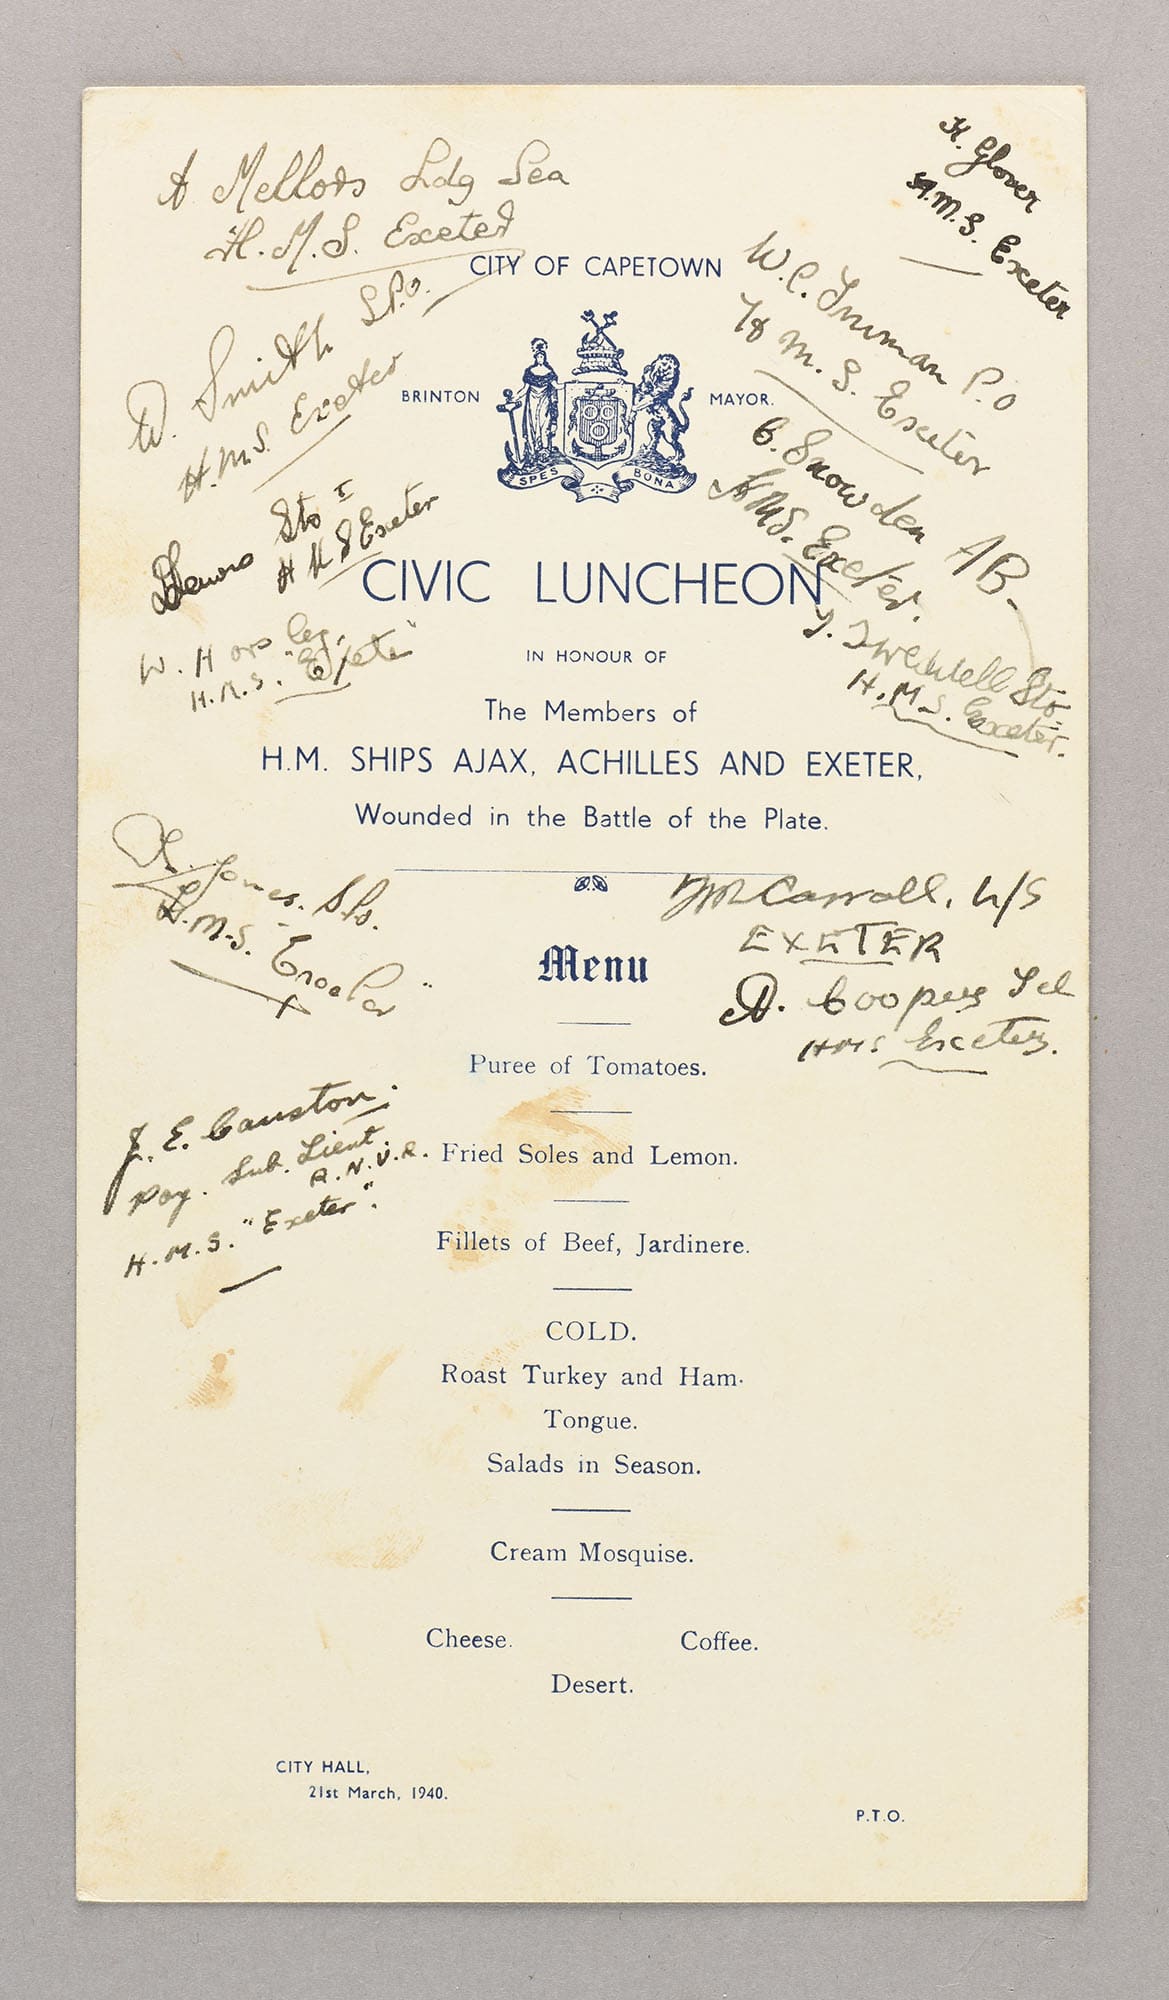 A Mellors Ldg Sea
H.M.S. Exeter
H. Glover
H.M.S. Exeter
CITY OF CAPETOWN
D. Smith S.P.O.
H.M.S. Exeter
W.C. Truman P.O
H.M.S. Exeter
BRINTON
MAYOR.
SPES BONA
C. Snowden AB.
HMS. Exeter.
Sto I
H M S Exeter
CIVIC LUNCHEON
W.
H.M.S. "Exeter"
Sto.
H.M.S. Exeter.
IN HONOUR OF
The Members of
H.M. SHIPS AJAX, ACHILLES AND EXETER,
Wounded in the Battle of the Plate.
Jones. S.P.O.
H.M.S.
Carroll, L/S
EXETER
A. Coopers Tel
HMS Exeter.
Menu
Puree of Tomatoes.
J. E. Causton.
Pay. Sub. Lieut.
R.N.V.R.
H.M.S. "Exeter".
Fried Soles and Lemon.
Fillets of Beef, Jardinere.
COLD.
Roast Turkey and Ham.
Tongue.
Salads in Season.
Cream Mosquise.
Cheese. Coffee.
Desert.
CITY HALL,
21st March, 1940.
P.T.O.